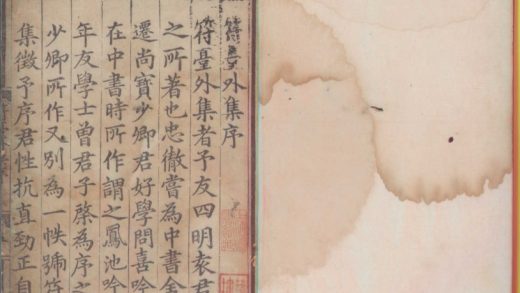 符臺外集序
符臺外集者予友四明袁君
之所著也忠徹嘗為中書舍
遷尚寶少卿君好學問喜吟
在中書時所作謂之鳳池吟
年友學士曾君子棨為序之
少卿所作又別為一帙號符
集徵予序君性抗直勁正自